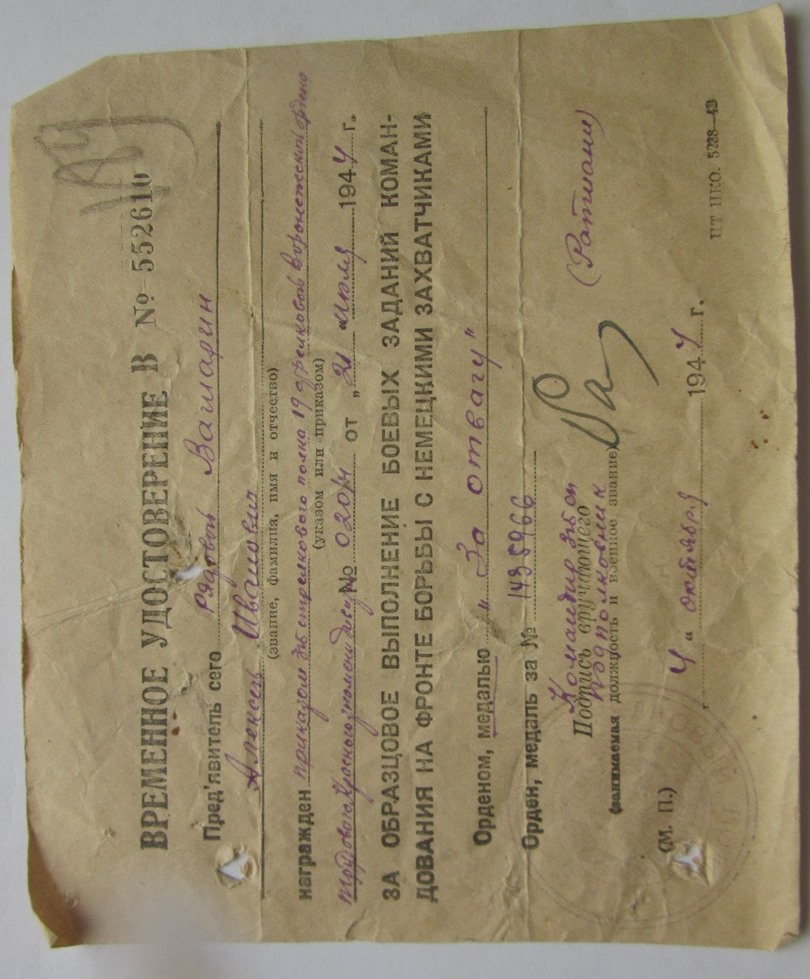 ВРЕМЕННОЕ УДОСТОВЕРЕНИЕ В № 552610
Пред'явитель сего рядовой Вашарин
Алексей Иванович
(звание, фамилия, имя и отчество)
награжден приказом стрелкового полка 19 стрелковой Воронежской ордена
(указом или приказом)
Трудового Красного знамени № 020/н от „21 июля 1944 г.
ЗА ОБРАЗЦОВОЕ ВЫПОЛНЕНИЕ БОЕВЫХ ЗАДАНИЙ КОМАН-
ДОВАНИЯ НА ФРОНТЕ БОРЬБЫ С НЕМЕЦКИМИ ЗАХВАТЧИКАМИ
Орденом, медалью „За отвагу"
Орден, медаль за № 1435966
Командир
Подполковник (Ратиани)
Подпись вручающего
(занимаемая должность и военное звание)
(М. П.)
„ 4 " октября 1944 г.